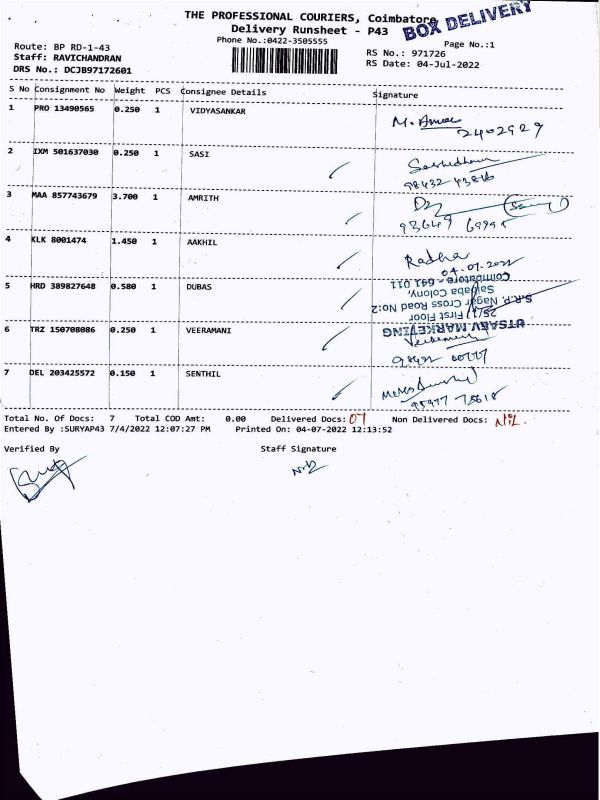 THE PROFESSIONAL COURIERS, Coimbatore
BOX DELIVERY
Delivery Runsheet - P43
Phone No.:0422-3505555
Page No.:1
Route: BP RD-1-43
RS No.: 971726
Staff: RAVICHANDRAN
RS Date: 04-Jul-2022
DRS No.: DCJB97172601
S No Consignment No Weight PCS Consignee Details Signature
1 PRO 13490565 0.250 1 VIDYASANKAR
2402929
2 IXM 501637030 0.250 1 SASI
Sasidharan
3 MAA 857743679 3.700 1 AMRITH
4 KLK 8001474 1.450 1 AAKHIL
Radha
04.07.2022
5 HRD 389827648 0.580 1 DUBAS
UTSABV MARKETING
25/1, First Floor
S.R.P. Nagar Cross Road No:2
Saibaba Colony,
Coimbatore - 641 011
6 TRZ 150708086 0.250 1 VEERAMANI
7 DEL 203425572 0.150 1 SENTHIL
Total No. Of Docs: 7 Total COD Amt: 0.00 Delivered Docs: 07 Non Delivered Docs: NIL.
Entered By :SURYAP43 7/4/2022 12:07:27 PM Printed On: 04-07-2022 12:13:52
Verified By Staff Signature